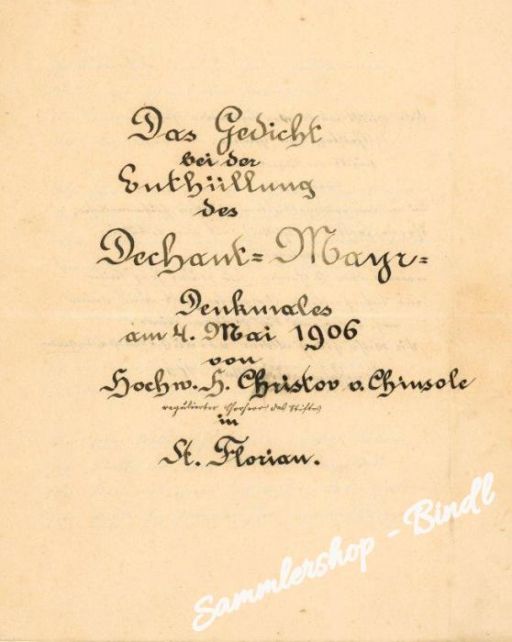 Das Gedicht
bei der
Enthüllung
des
Dechant=Mayr=
Denkmales
am 4. Mai 1906
von
Hochw. H. Christov v. Chinsole
regulierter Chorherr des Stiftes
in
St. Florian.
Sammlershop - Bindl